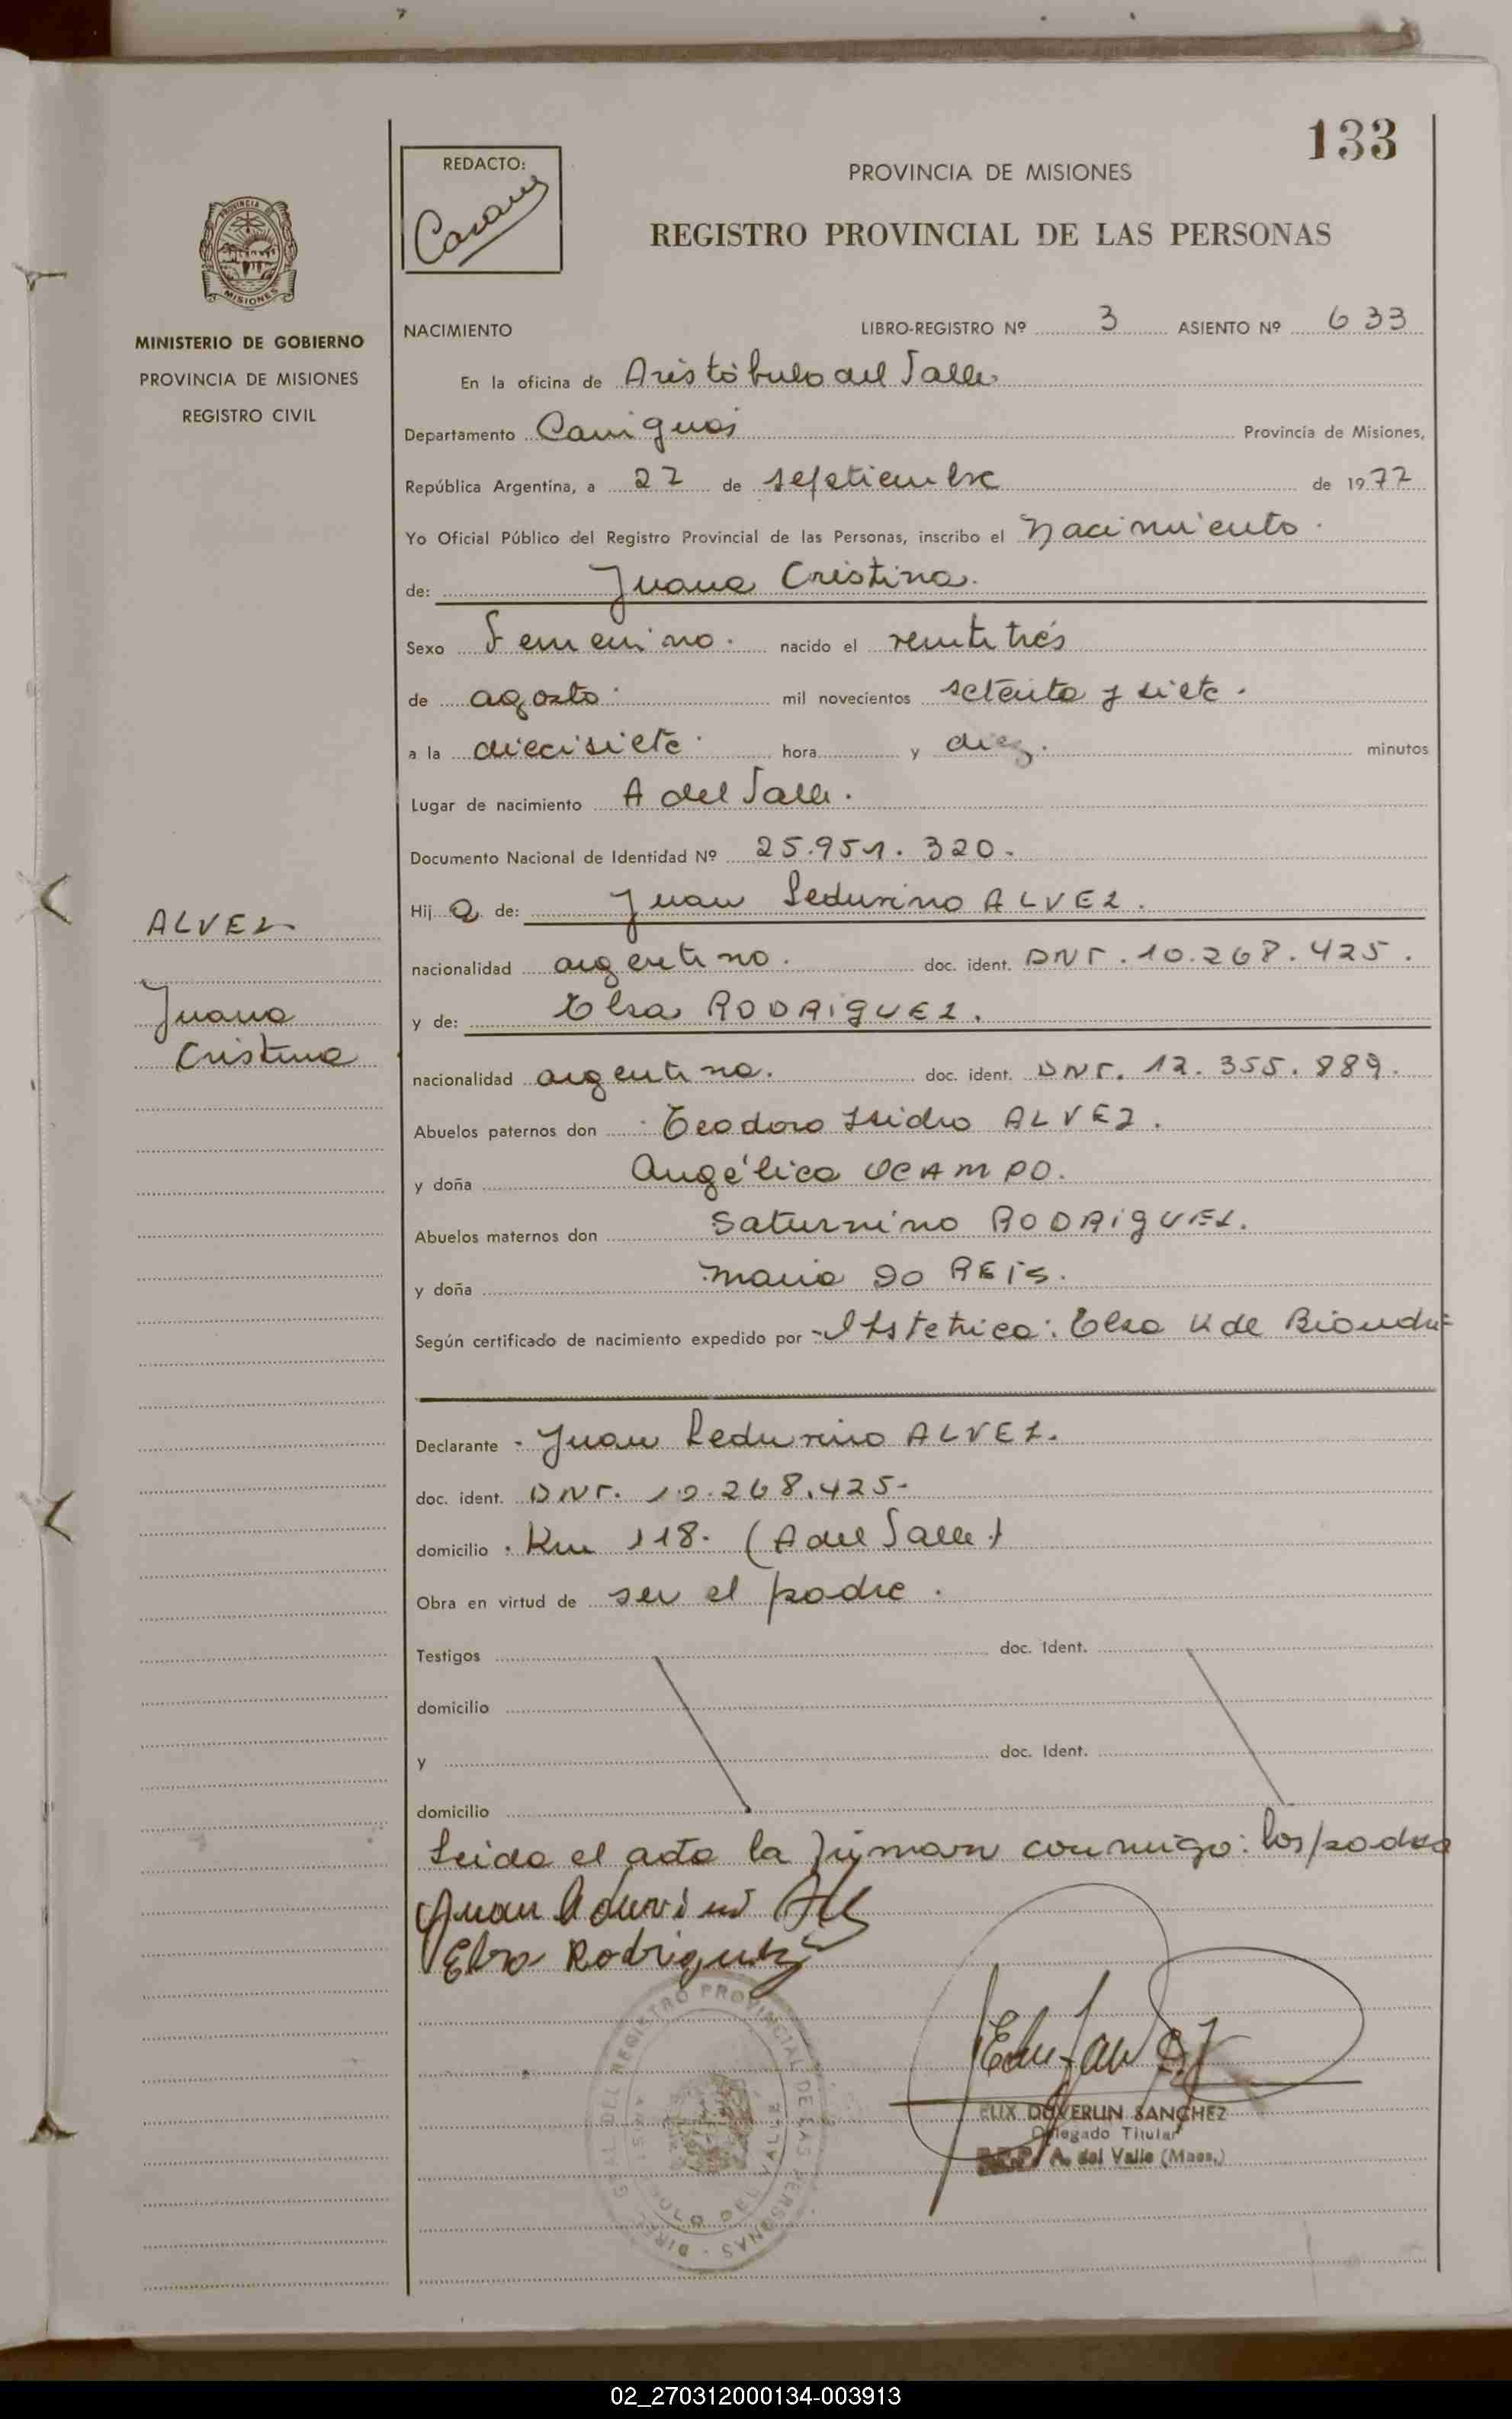 133
REDACTO:
PROVINCIA DE MISIONES
REGISTRO PROVINCIAL DE LAS PERSONAS
PROVINCIA DE
MISIONES
MINISTERIO DE GOBIERNO
PROVINCIA DE MISIONES
REGISTRO CIVIL
NACIMIENTO LIBRO-REGISTRO Nº 3 ASIENTO Nº 633
En la oficina de Aristóbulo del Valle
Departamento Cainguás Provincia de Misiones,
República Argentina, a 27 de septiembre de 1977
Yo Oficial Público del Registro Provincial de las Personas, inscribo el Nacimiento.
de: Juana Cristina.
Sexo Femenino. nacido el veintitrés
de agosto. mil novecientos setenta y siete.
a la diecisiete. hora y diez. minutos
Lugar de nacimiento A del Valle.
Documento Nacional de Identidad Nº 25.951.320.
Hij a de: Juan Ledurino ALVEZ.
nacionalidad argentino. doc. ident. DNI. 10.268.425.
y de: Elsa RODRIGUEZ.
nacionalidad argentina. doc. ident. DNI. 12.355.889.
Abuelos paternos don Teodoro Isidro ALVEZ.
y doña Angélica OCAMPO.
Abuelos maternos don Saturnino RODRIGUEZ.
y doña Maria DO REIS.
Según certificado de nacimiento expedido por Obstetrica: Elsa K de
ALVEZ
Juana
Cristina
Declarante - Juan Ledurino ALVEZ.
doc. ident. DNI. 10.268.425-
domicilio . Km 118. (A del Valle)
Obra en virtud de ser el padre.
Testigos doc. Ident.
domicilio
y doc. Ident.
domicilio
Leida el acta la firman conmigo: los padres
Juan
Elsa Rodriguez
DIREC. GRAL DEL REGISTRO PROVINCIAL DE LAS PERSONAS
DEL VALLE
DUVERLIN SANCHEZ
Delegado Titular
A. del Valle (Mnes.)
02_270312000134-003913